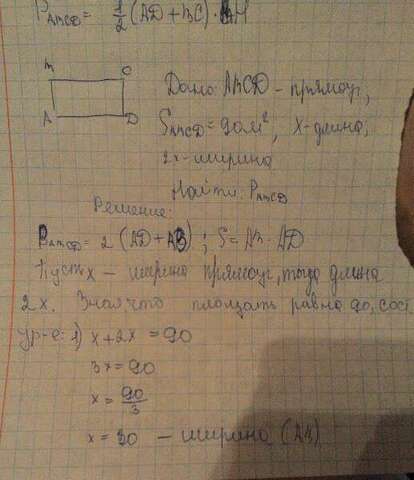 P_ABCD = 1/2 (AD + BC) · BH
B C
A D
Дано: ABCD - прямоуг,
S_ABCD = 90 м², x - длина,
2x - ширина
Найти: P_ABCD
Решение:
P_ABCD = 2 (AD + AB) ; S = AB · AD
Пусть x - ширина прямоуг, тогда длина
2x. Зная что площать равна 90, сост
ур-е: 1) x + 2x = 90
3x = 90
x = 90/3
x = 30 - ширина (AB)